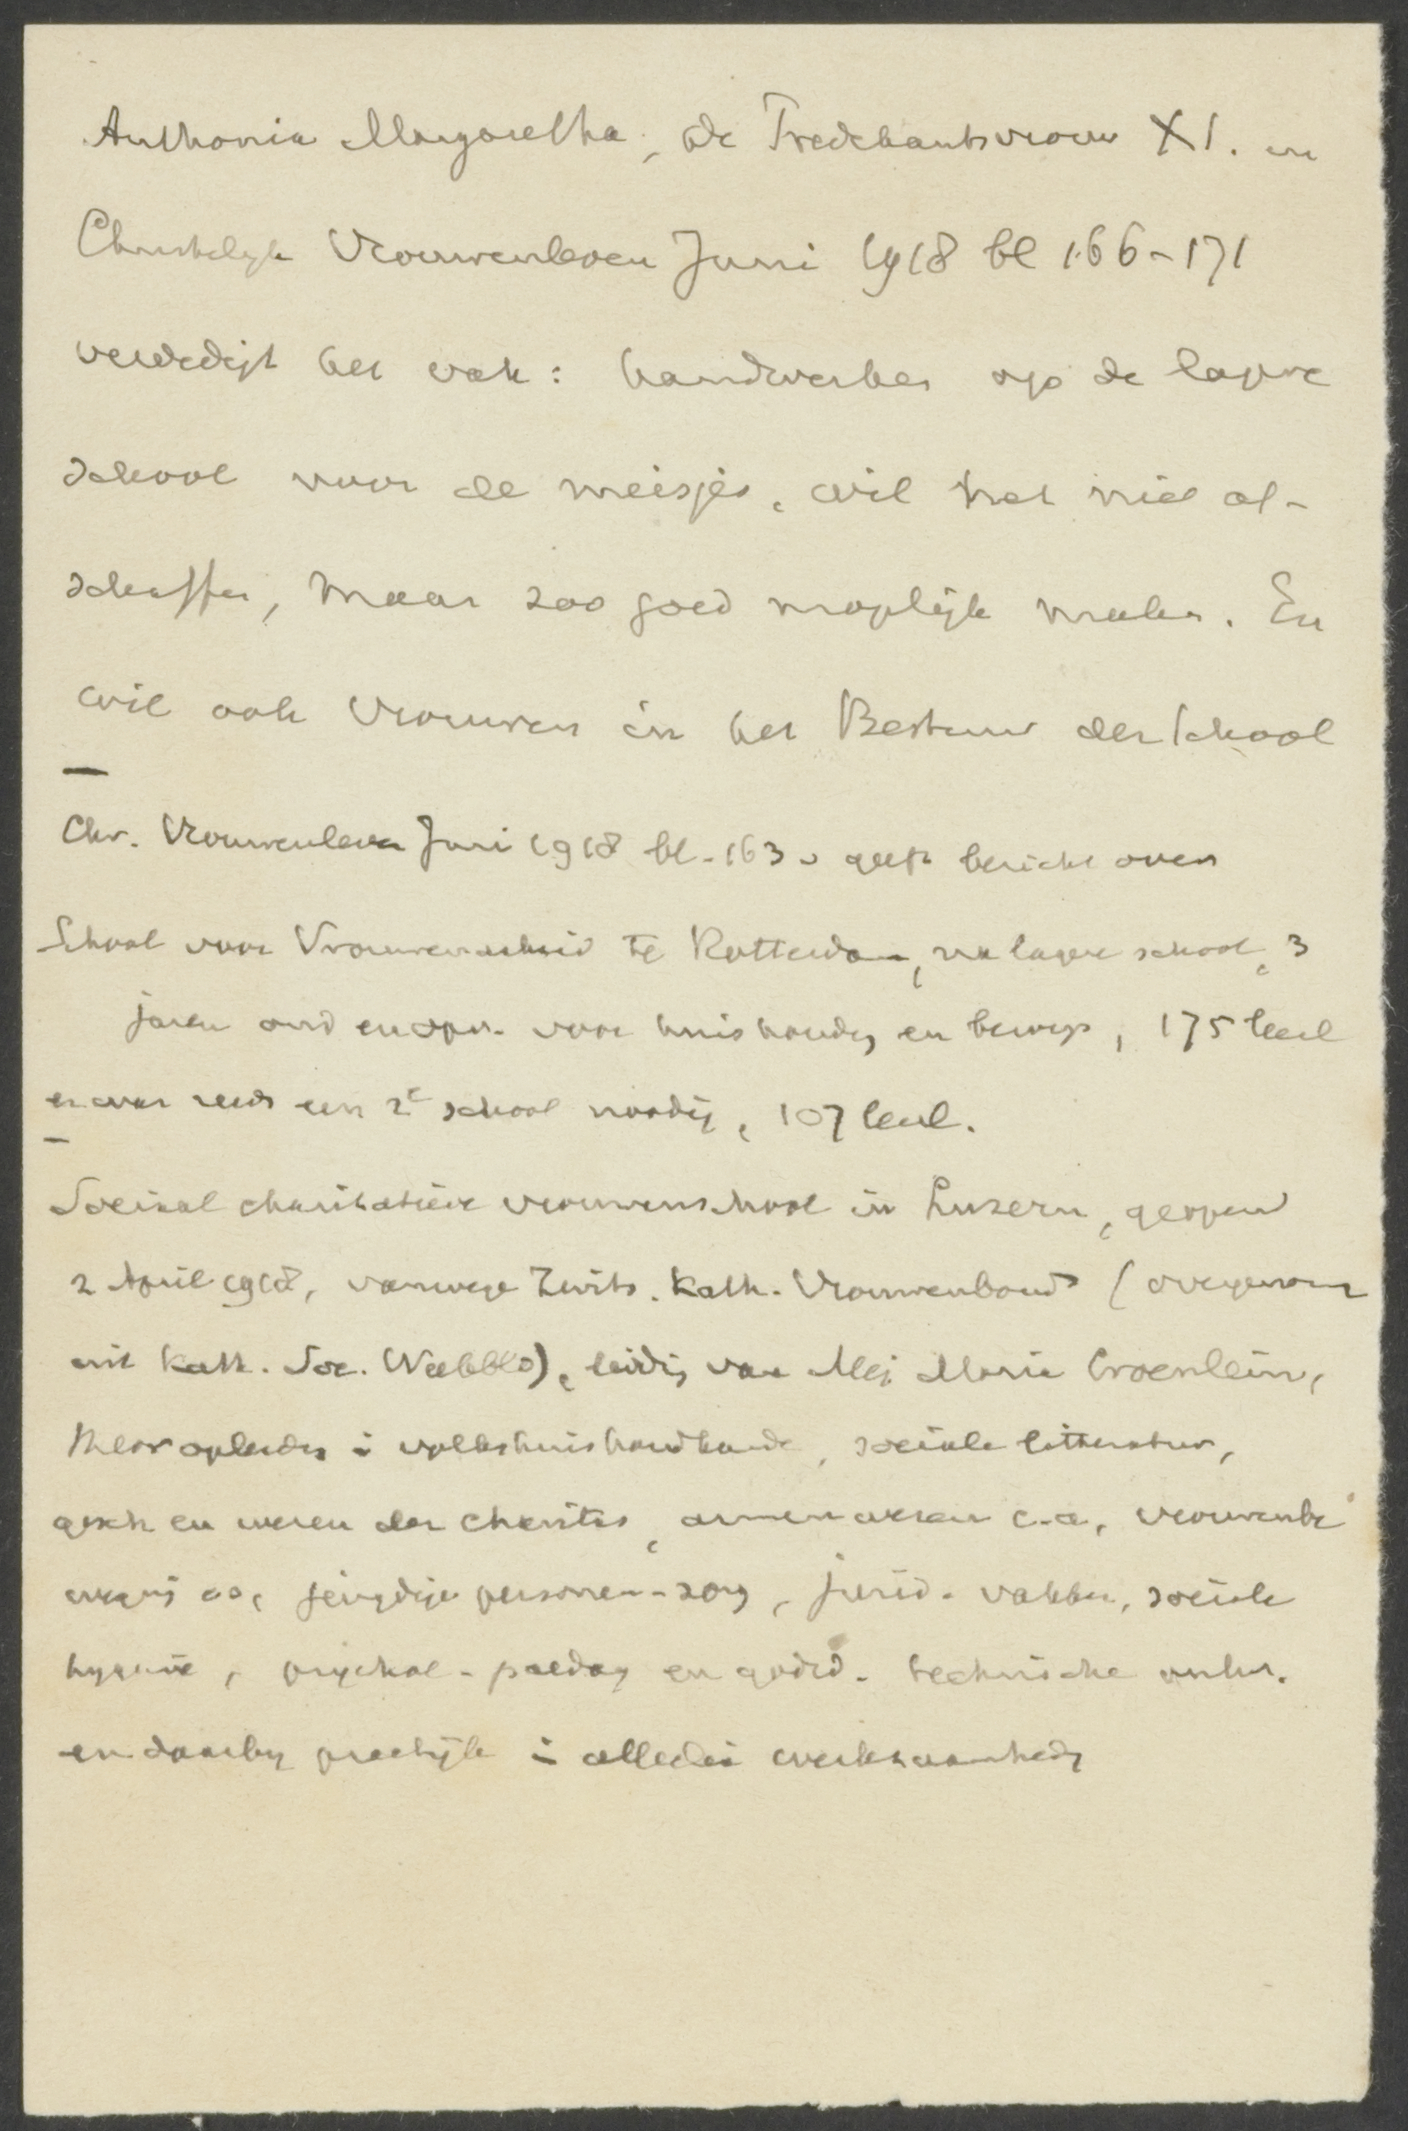 Anthonia Margaretha, de Predekantsvrouw XI. in
Christelijk Vrouwenleven Juni 1918 bl 166-171
verdedigt het vak: handwerken op de lagere
school voor de meisjes, wil het niet af-
schaffen, maar zoo goed mogelijk maken. En
wil ook Vrouwen in het Bestuur der School
—
Chr. Vrouwenleven Juni 1918 bl. 163 v geeft bericht over
School voor Vrouwenarbeid te Rotterdam, na lagere school, 3
jaren voor huishoudg en beroep, 175 leerl
er was reeds een 2e school noodig, 107 leerl.
—
Sociaal charitatieve vrouwenschool in Luzern, geopend
2 April 1918, vanwege Zwits. Kath. Vrouwenbond (overgenomen
uit Kath. Soc. Weekbld), leidg van Mej Maria Croenlein,
theor opleidg i volkshuishoudkunde, sociale litteratuur,
gesch en wezen der charitas, armenwezen c.a., vrouwenbe
weging jeugdige personen-zorg, jurid. vakken, sociale
hygiene, psychol-paedag en godsd. technische onderr.
en daarbij practijk i allerlei werkzaamhedg